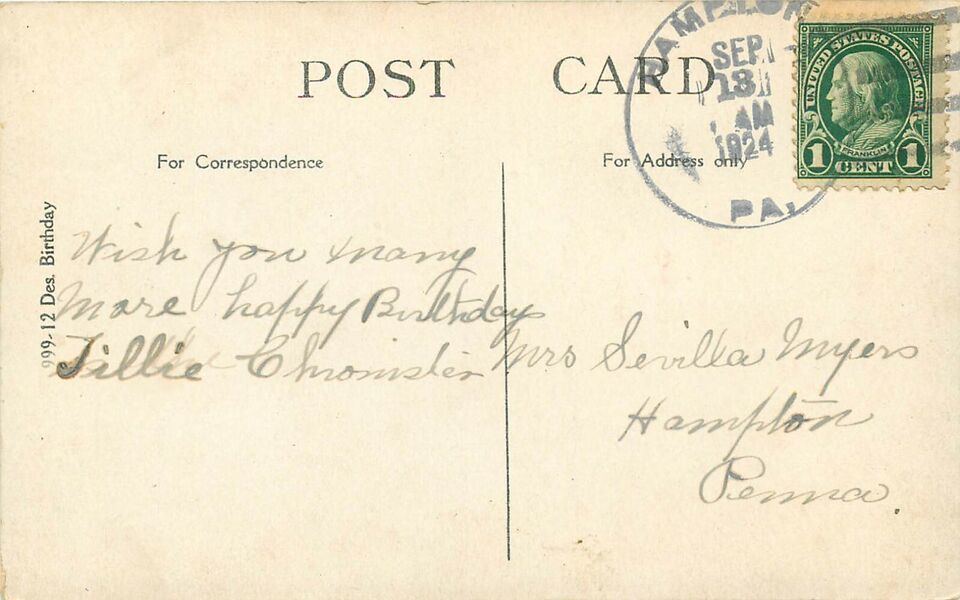 POST CARD
For Correspondence
For Address only
HAMPTON
SEP
13
AM
1924
PA.
UNITED STATES POSTAGE
FRANKLIN
1 CENT 1
999-12 Des. Birthday
Wish you many
More happy Birthdays
Tillie Chronister
Mrs Sevilla Myers
Hampton
Penna